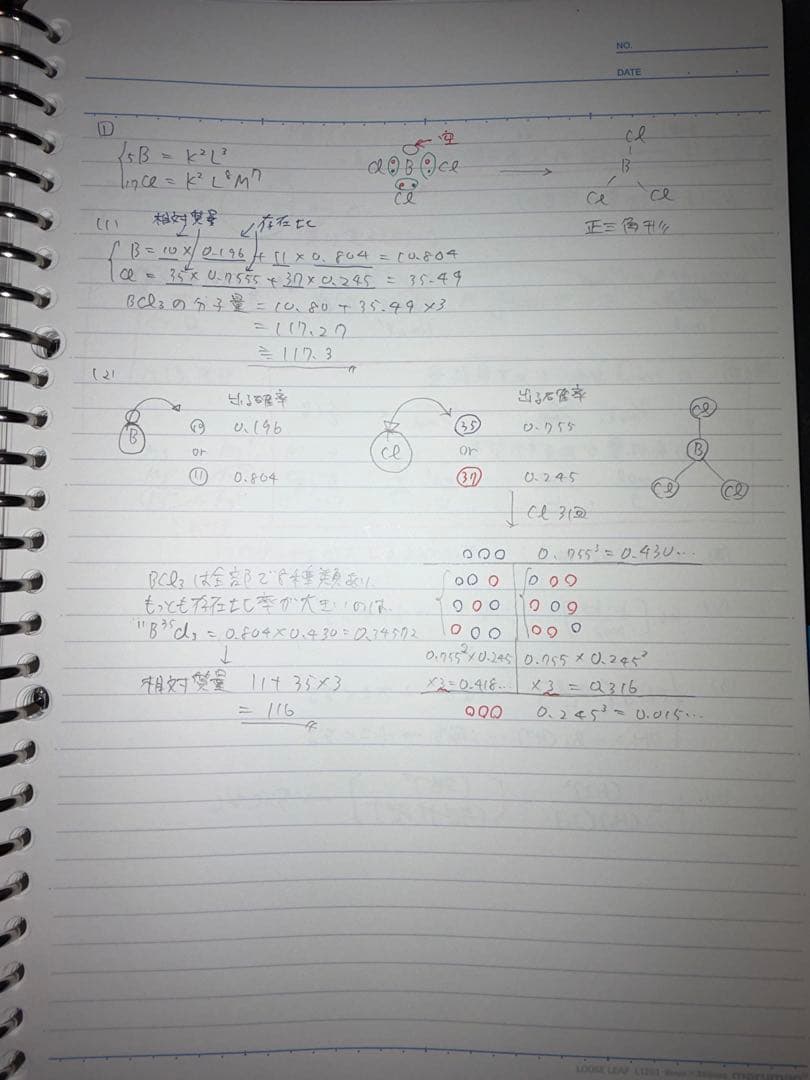 NO.
DATE
1
₅B = K²L³
₁₇Cl = K²L⁸M⁷
空
Cl B Cl
Cl
→
Cl
B
Cl Cl
正三角形
(1) 相対質量 存在比
B = 10 × 0.196 + 11 × 0.804 = 10.804
Cl = 35 × 0.7555 + 37 × 0.245 = 35.49
BCl₃の分子量 = 10.80 + 35.49 × 3
= 117.27
≒ 117.3
(2)
出る確率 出る確率
B 10 0.196 Cl 35 0.755
or or
11 0.804 37 0.245
Cl
B
Cl Cl
↓ Cl 3個
○○○ 0.755³ = 0.430…
BCl₃は全部で8種類あり、
もっとも存在比率が大きいのは、
¹¹B³⁵Cl₃ = 0.804 × 0.430 = 0.34572
↓
相対質量 11 + 35 × 3
= 116
○○○ ○○○
○○○ ○○○
○○○ ○○○
0.755² × 0.245 0.755 × 0.245²
×3 = 0.418… ×3 = 0.316
○○○ 0.245³ = 0.015…
LOOSE LEAF